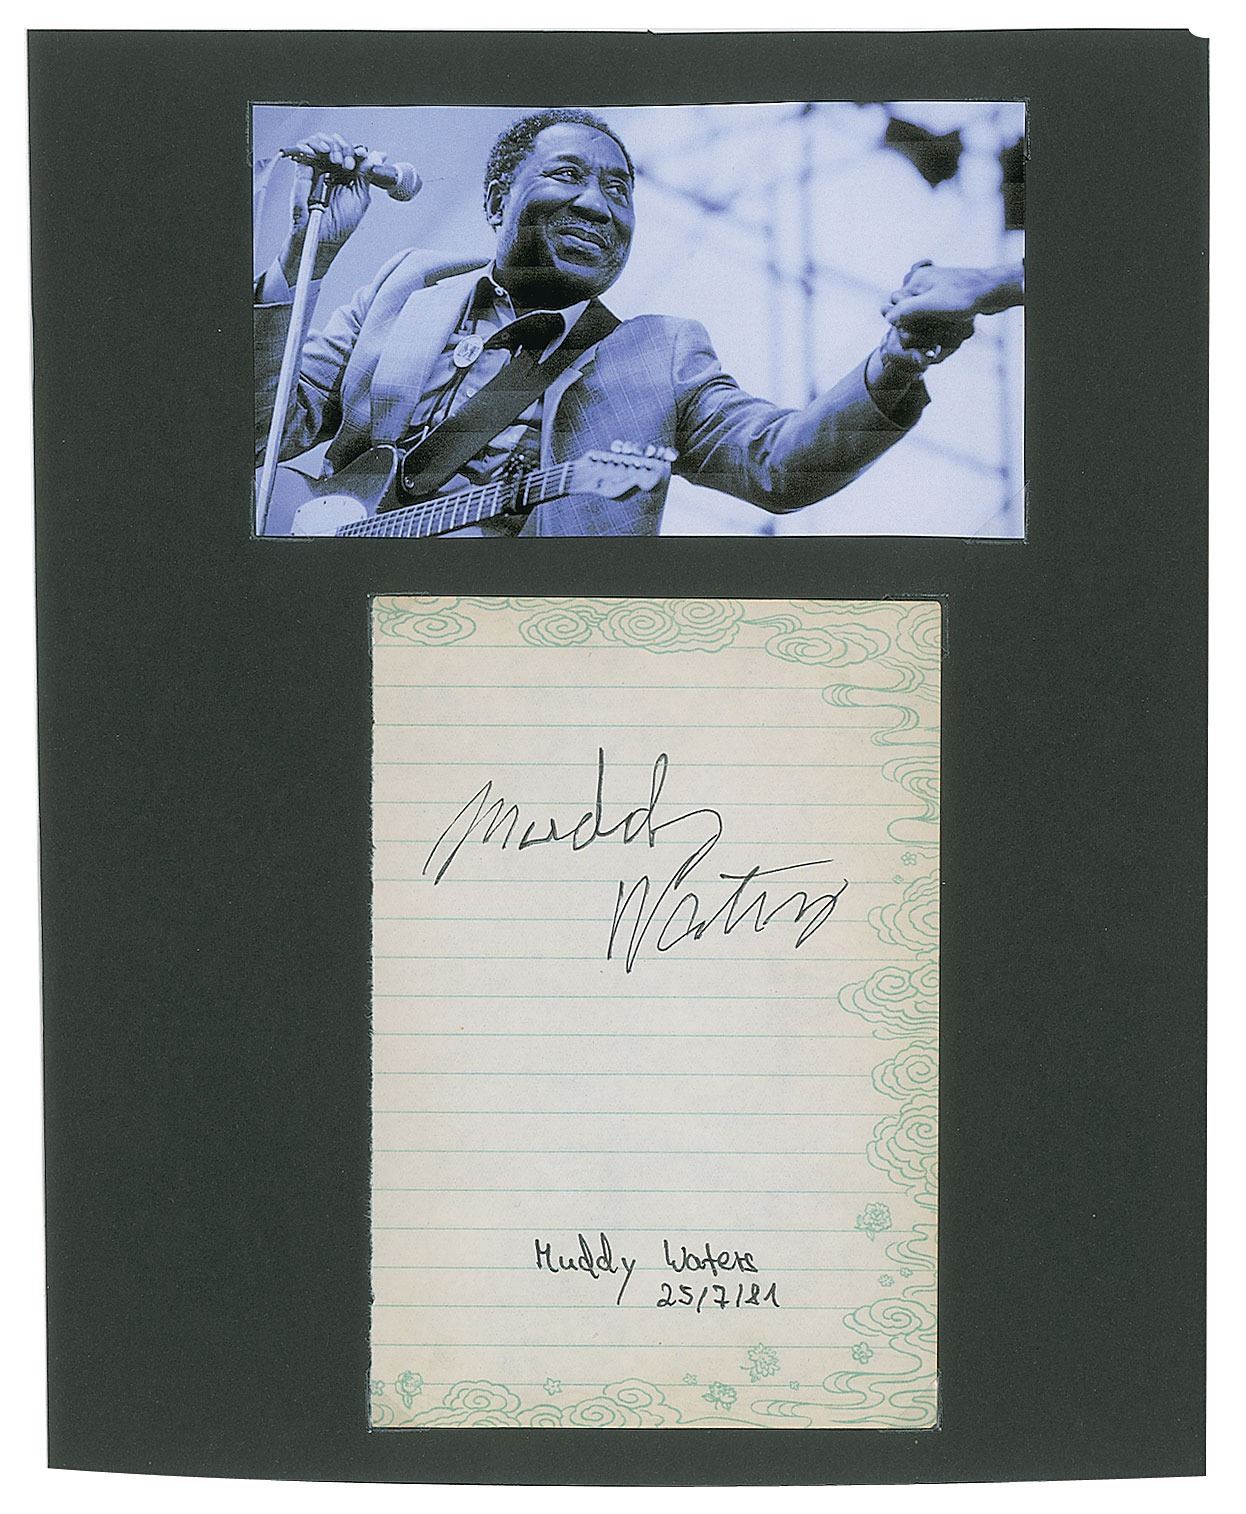 Muddy
Waters
Muddy Waters
25/7/81